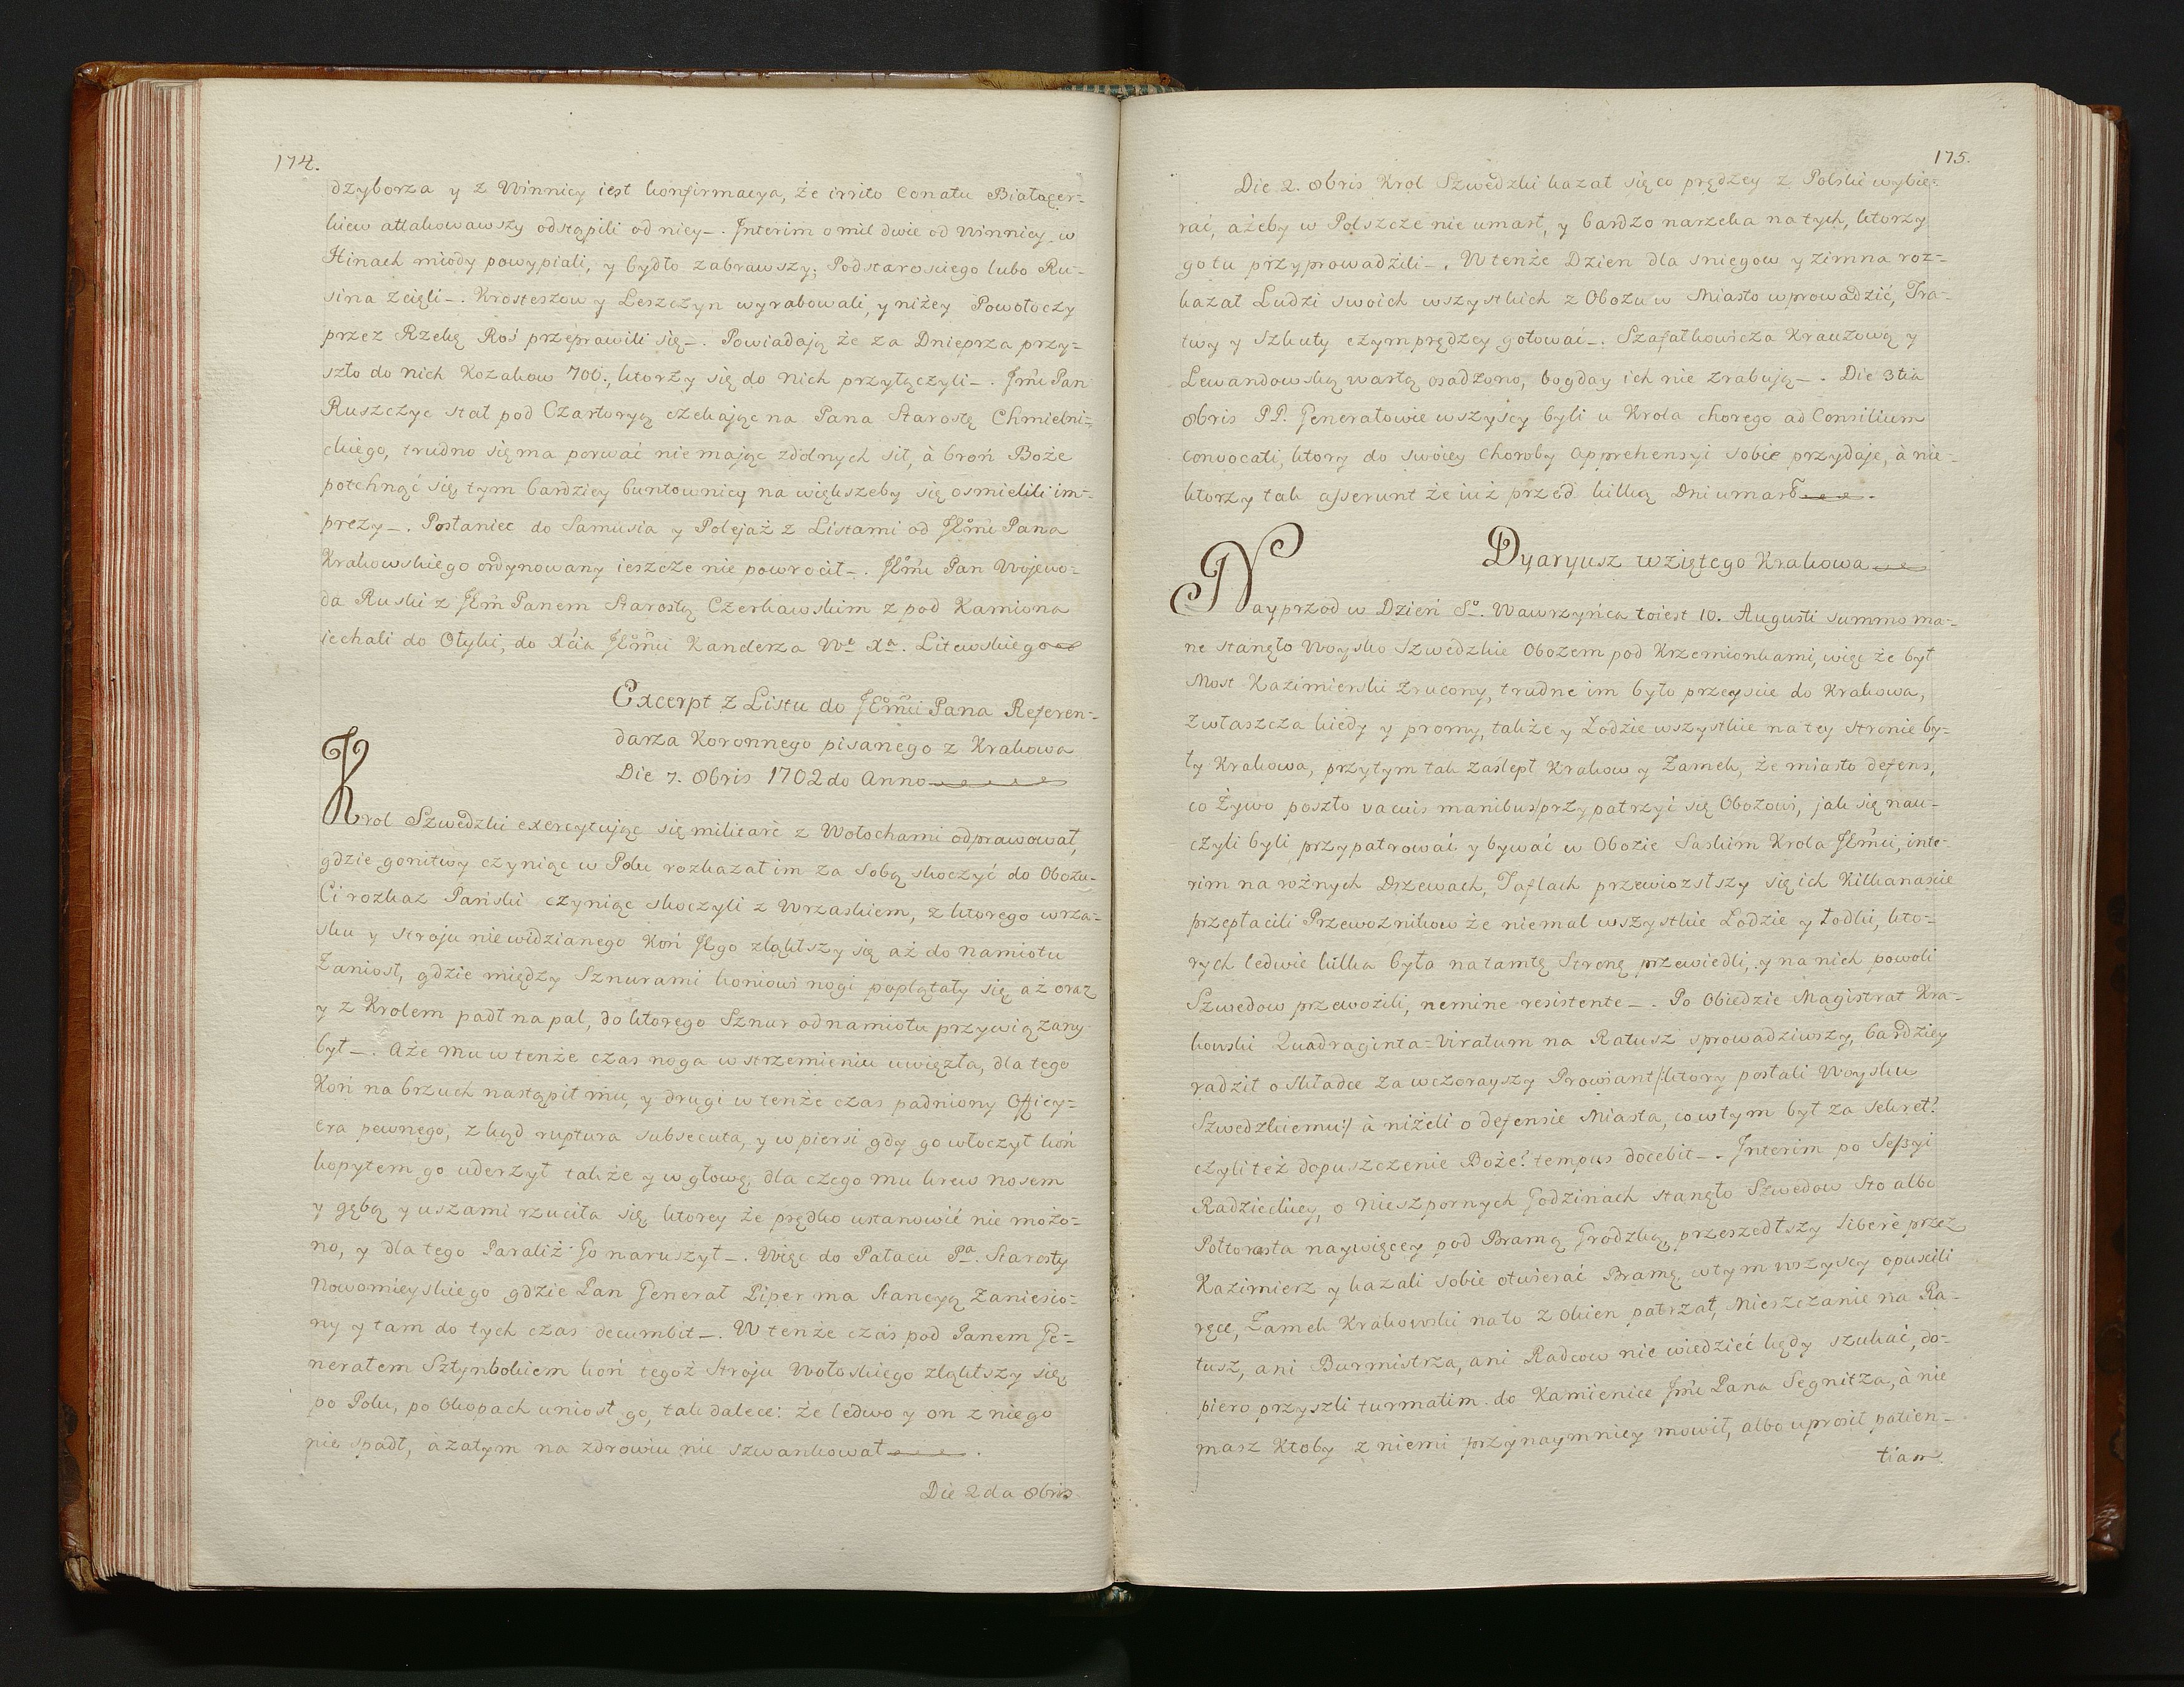 174.
dzyborza y z Winnicy iest konfirmacya, że irrito Conatu Białącer-
kiew attakowawszy odstąpili od niey_. Interim o mil dwie od Winnicy w
Hinach miody powypiali, y bydło zabrawszy; Podstarosciego lubo Ru-
sina zcięli_. Krosteszow y Leszczyn wyrabowali, y niżey Powołoczy
przez Rzekę Roś przeprawili się_. Powiadają że za Dnieprza przy-
szło do nich Kozakow 700., ktorzy się do nich przyłączyli_. Jmć Pan
Ruszczyc stał pod Czartoryą czekając na Pana Starostę Chmielni-
ckiego, trudno się ma porwać nie mając zdolnych sił, à broń Boże
potchnąć się, tym bardziey buntownicy na większeby się osmielili im-
prezy_. Posłaniec do Samusia y Poleyaż z Listami od JEmci Pana
Krakowskiego ordynowany ieszcze nie powrocił_. JEmć Pan Wojewo-
da Ruski z JEm Panem Starostą Czerkawskim z pod Kamiona
iechali do Ołyki, do Xcia JEmci Kanclerza Wo Xa. Litewskiego
Excerpt z Listu do JEmci Pana Referen-
darza Koronnego pisanego z Krakowa
Die 7. 8bris 1702do Anno
Krol Szwedzki exercytując się militarè z Wołochami odprawował,
gdzie gonitwy czyniąc w Polu rozkazał im za sobą skoczyć do Obozu-
Ci rozkaz Pański czyniąc skoczyli z wrzaskiem, z ktorego wrza-
sku y stroju niewidzianego Koń JEgo zląkłszy się aż do namiotu
zaniosł, gdzie między Sznurami koniowi nogi poplątały się aż oraz
y z Krolem padł na pal, do ktorego Sznur od namiotu przywiązany
był_. Aże mu w tenże czas noga w strzemieniu uwięzła, dla tego
Koń na brzuch nastąpił mu, y drugi w tenże czas padniony Officy-
era pewnego, zkąd ruptura subsecuta, y w piersi gdy go włoczył koń
kopytem go uderzył także y w głowę, dla czego mu krew nosem
y gębą y uszami rzuciła się, ktorey że prędko ustanowić nie możo-
no, y dla tego Paraliż Go naruszył_. Więc do Pałacu Pa. Starosty
Nowomieyskiego gdzie Pan Generał Piper ma Stancyą zaniesio-
ny y tam do tych czas decumbit_. W tenże czas pod Panem Ge-
nerałem Sztynbokiem koń tegoż stroju Wołoskiego zląkłszy się,
po Polu, po Okopach uniosł go, tak dalece: że ledwo y on z niego
nie spadł, à zatym na zdrowiu nie szwankował.
Die 2da 8bris
175.
Die 2. 8bris Krol Szwedzki kazał się co prędzey z Polski wybie-
rać, ażeby w Polszcze nie umarł, y bardzo narzeka na tych, ktorzy
go tu przyprowadzili_. W tenże Dzien dla sniegow y zimna roz-
kazał Ludzi swoich wszystkich z Obozu w Miasto wprowadzić, Tra-
twy y Szkuty czymprędzey gotować_. Szafałkowicza Krauzową y
Lewandowską wartą osadzono, bogday ich nie zrabują_. Die 3tia
8bris PP. Generałowie wszyscy byli u Krola chorego ad Consilium
convocati, ktory do swoiey choroby apprehensyi sobie przydaje, à nie-
ktorzy tak asserunt że iuż przed kilką Dni umarł.
Dyaryusz wziętego Krakowa
Nayprzod w Dzień So. Wawrzyńca toiest 10. Augusti summo ma-
ne stanęło Woysko Szwedzkie Obozem pod Krzemionkami, więc że był
Most Kazimierski zrucony, trudne im było przeyscie do Krakowa,
zwłaszcza kiedy y promy, także y Łodzie wszystkie na tey stronie by-
ły Krakowa, przytym tak zaslepł Krakow y Zamek, że miasto defens,
co żywo poszło vacuis manibus przypatrzyć się Obozowi, jak się nau-
czyli byli przypatrować y bywać w Obozie Saskim Krola JEmci, inte-
rim na rożnych Drzewach, Taflach przewiozszy się ich Kilkanascie
przepłacili Przewoznikow że niemal wszystkie Łodzie y Łodki, kto-
rych ledwie kilka była na tamtę Stronę przewiedli, y na nich powoli
Szwedow przewozili, nemine resistente_. Po Obiedzie Magistrat Kra-
kowski Quadraginta-Viratum na Ratusz sprowadziwszy, bardziey
radził o składce za wczorayszy Prowiant/:ktory posłali Woysku
Szwedzkiemu:/ à niżeli o defensie Miasta, co w tym był za sekret?
czyli też dopuszczenie Boże? tempus docebit_. Interim po Seszyi
Radzieckiey, o Nieszpornych Godzinach stanęło Szwedow Sto albo
Połtorasta naywięcey pod Bramą Grodzką, przeszedłszy liberè przez
Kazimierz y kazali sobie otwierać Bramę, w tym wszyscy opuscili
ręce, Zamek Krakowski na to z Okien patrzał, Mieszczanie na Ra-
tusz, ani Burmistrza, ani Radcow nie wiedzieć kędy szukać, do-
piero przyszli turmatim do Kamienice Jmci Pana Segnitza, à nie
masz Ktoby z niemi przynaymniey mowił, albo uprosił patien-
tiam.